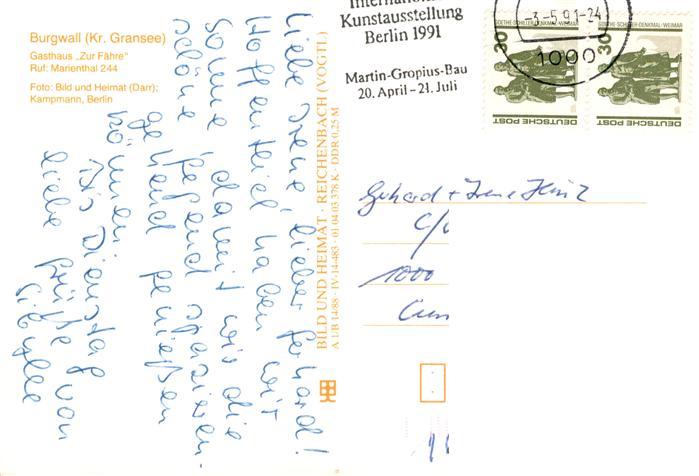 Burgwall (Kr. Gransee)
Gasthaus „Zur Fähre"
Ruf: Marienthal 244
Foto: Bild und Heimat (Darr);
Kampmann, Berlin
Liebe Irene, lieber Gerhard!
Hoffentlich haben wir
Sonne, damit wir die
schöne Gegend spazieren-
gehend genießen
können.
Bis Dienstag
liebe Grüße von
Sibylle
BILD UND HEIMAT · REICHENBACH (VOGTL)
A 1/B 14/88 · IV-14-483 · 01 04 03 378 K · DDR 0,25 M
Kunstausstellung
Berlin 1991
Martin-Gropius-Bau
20. April – 21. Juli
-3.-5.91-24
1000
GOETHE-SCHILLER-DENKMAL·WEIMAR
30
DEUTSCHE POST
GOETHE-SCHILLER-DENKMAL·WEIMAR
30
DEUTSCHE POST
Gerhard + Irene Heinz
C/
1000